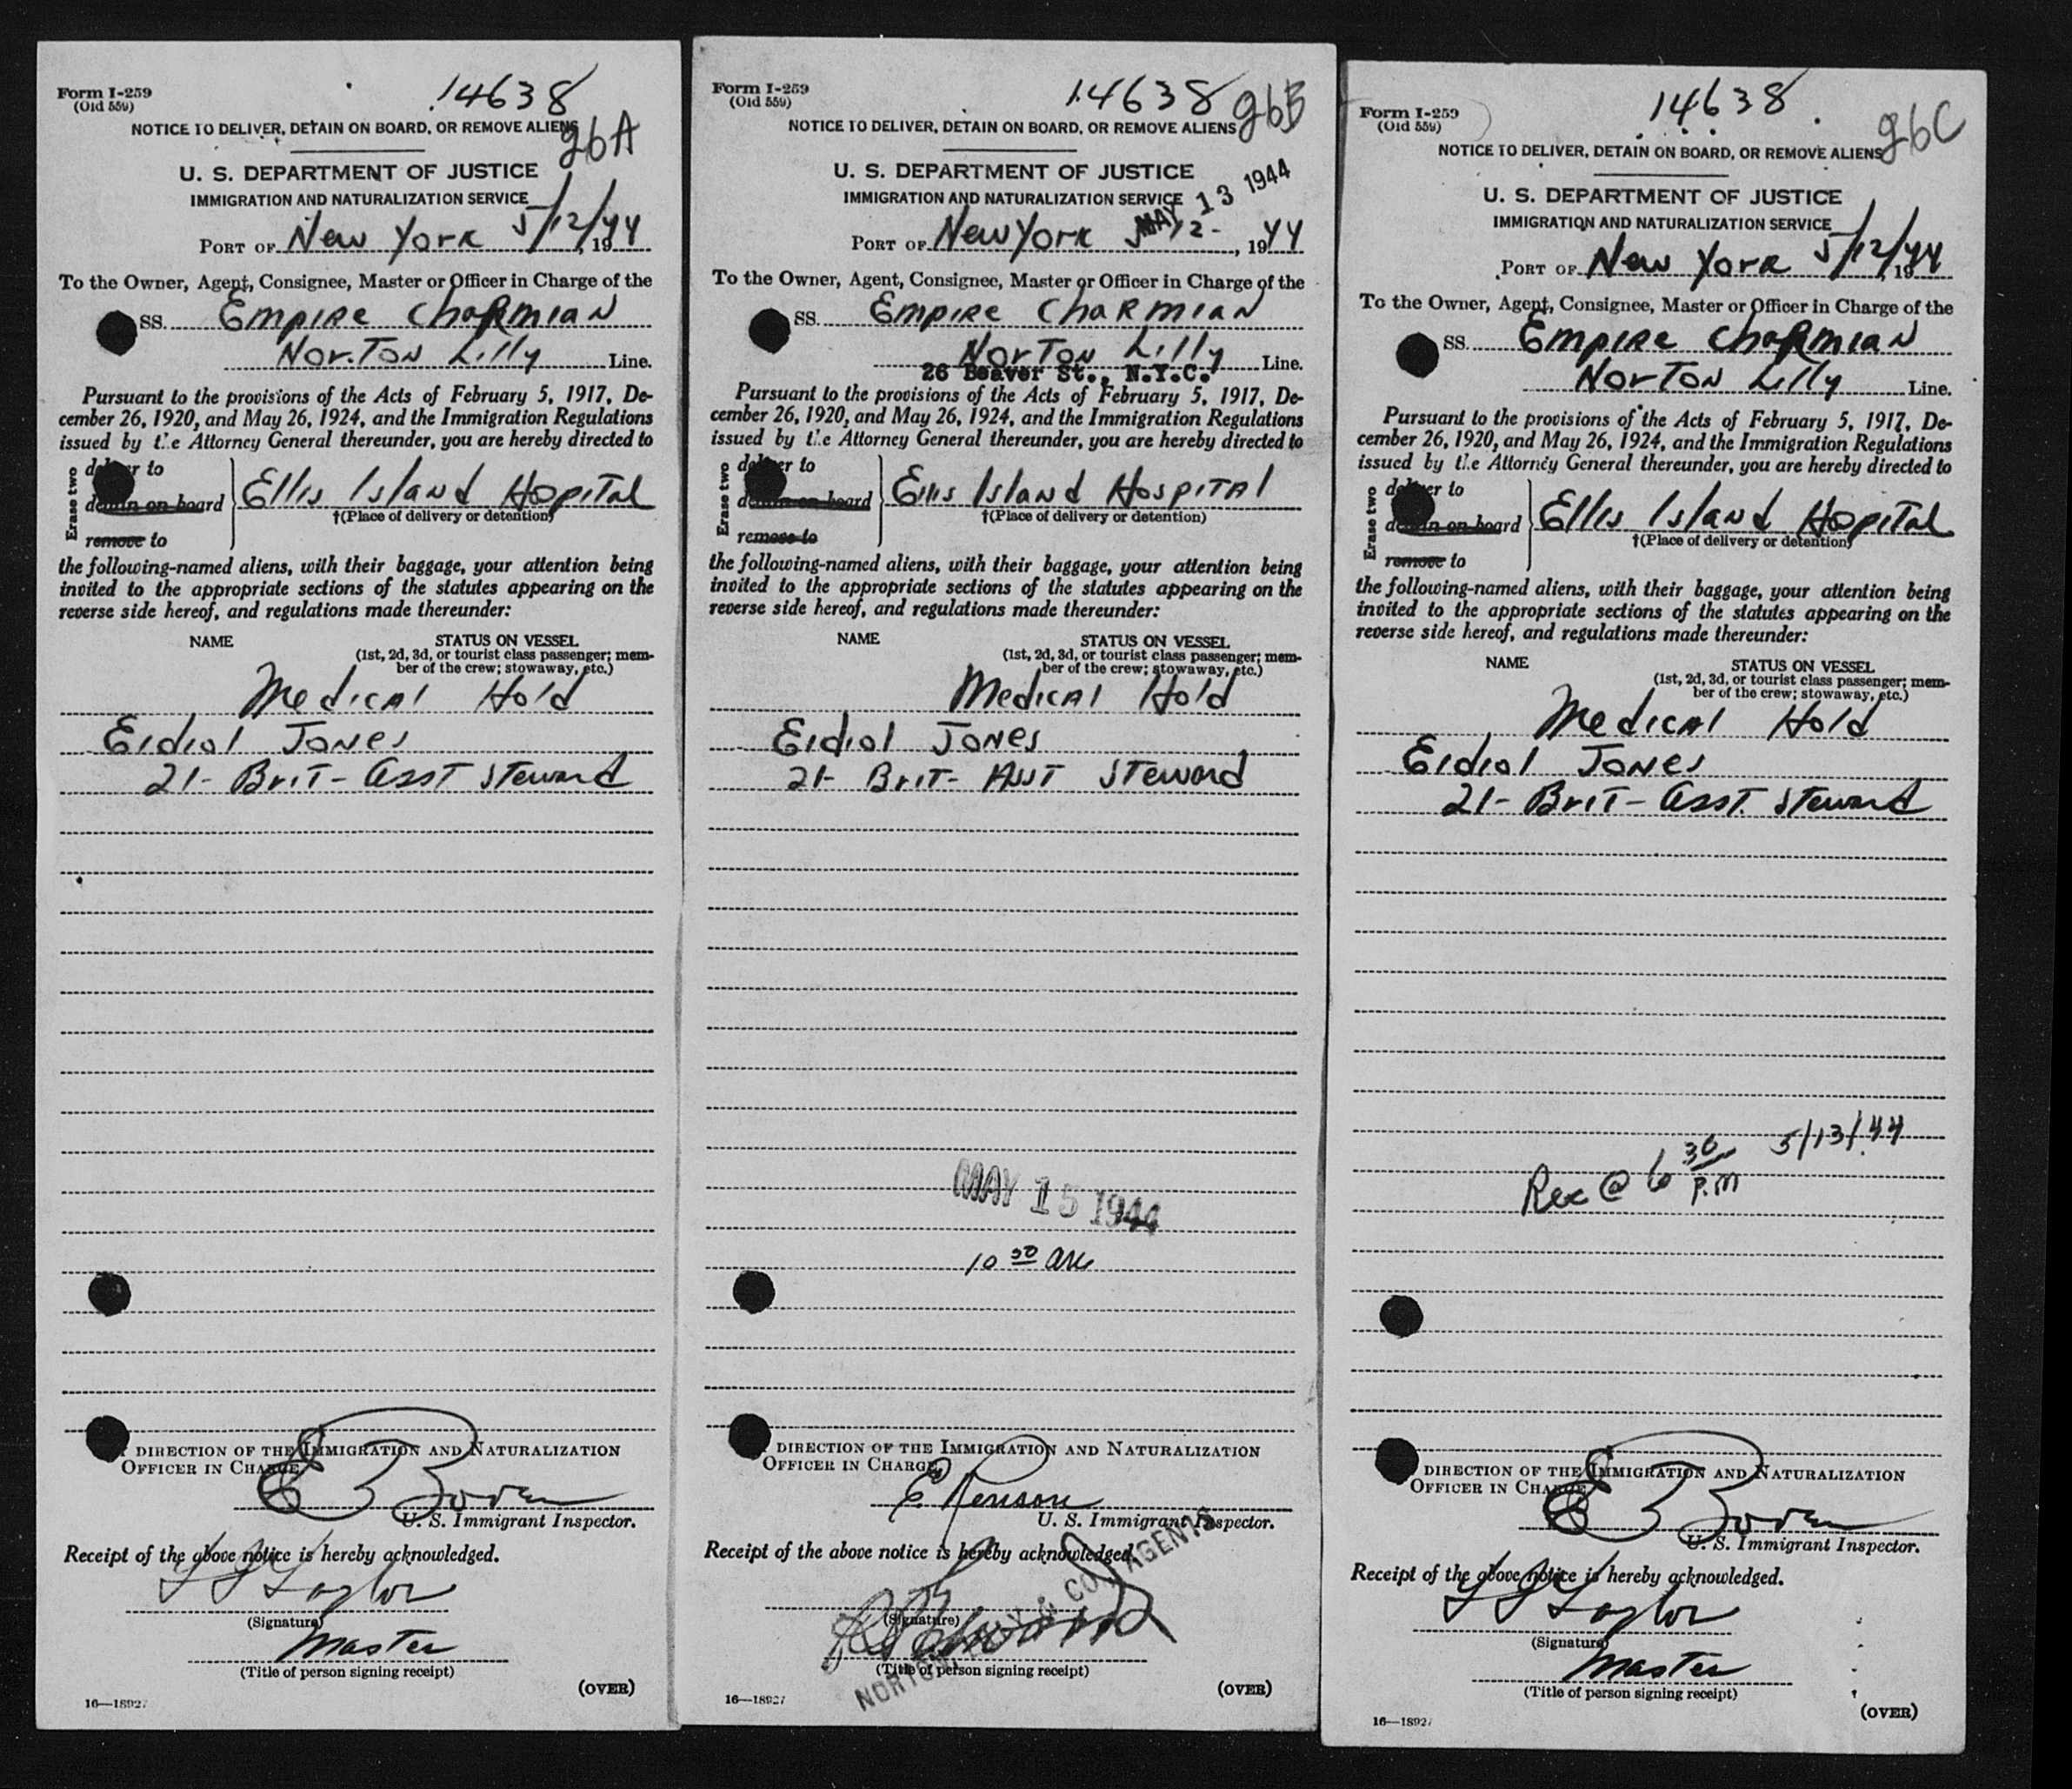 Form I-259
(Old 559)
14638
26A
NOTICE TO DELIVER, DETAIN ON BOARD, OR REMOVE ALIENS
U. S. DEPARTMENT OF JUSTICE
IMMIGRATION AND NATURALIZATION SERVICE
PORT OF New York 5/12/, 1944
To the Owner, Agent, Consignee, Master or Officer in Charge of the
SS. Empire Charmian
Norton Lilly Line.
Pursuant to the provisions of the Acts of February 5, 1917, De-
cember 26, 1920, and May 26, 1924, and the Immigration Regulations
issued by the Attorney General thereunder, you are hereby directed to
Erase two
deliver to
detain on board
remove to
Ellis Island Hopital
†(Place of delivery or detention)
the following-named aliens, with their baggage, your attention being
invited to the appropriate sections of the statutes appearing on the
reverse side hereof, and regulations made thereunder:
NAME STATUS ON VESSEL
(1st, 2d, 3d, or tourist class passenger; mem-
ber of the crew; stowaway, etc.)
Medical Hold
Eidiol Jones
21- Brit- Asst Steward
DIRECTION OF THE IMMIGRATION AND NATURALIZATION
OFFICER IN CHARGE
U. S. Immigrant Inspector.
Receipt of the above notice is hereby acknowledged.
Taylor
(Signature)
Master
(Title of person signing receipt)
(OVER)
16—18927
Form I-259
(Old 559)
14638
26B
NOTICE TO DELIVER, DETAIN ON BOARD, OR REMOVE ALIENS
U. S. DEPARTMENT OF JUSTICE
IMMIGRATION AND NATURALIZATION SERVICE
MAY 13 1944
PORT OF New York 5/12-, 1944
To the Owner, Agent, Consignee, Master or Officer in Charge of the
SS. Empire Charmian
Norton Lilly Line.
26 Beaver St., N.Y.C.
Pursuant to the provisions of the Acts of February 5, 1917, De-
cember 26, 1920, and May 26, 1924, and the Immigration Regulations
issued by the Attorney General thereunder, you are hereby directed to
Erase two
deliver to
detain on board
remove to
Ellis Island Hospital
†(Place of delivery or detention)
the following-named aliens, with their baggage, your attention being
invited to the appropriate sections of the statutes appearing on the
reverse side hereof, and regulations made thereunder:
NAME STATUS ON VESSEL
(1st, 2d, 3d, or tourist class passenger; mem-
ber of the crew; stowaway, etc.)
Medical Hold
Eidiol Jones
21- Brit- Asst Steward
MAY 15 1944
DIRECTION OF THE IMMIGRATION AND NATURALIZATION
OFFICER IN CHARGE
U. S. Immigrant Inspector.
Receipt of the above notice is hereby acknowledged.
(Signature)
(Title of person signing receipt)
(OVER)
16—18927
Form I-259
(Old 559)
14638
26C
NOTICE TO DELIVER, DETAIN ON BOARD, OR REMOVE ALIENS
U. S. DEPARTMENT OF JUSTICE
IMMIGRATION AND NATURALIZATION SERVICE
PORT OF New York 5/12/, 1944
To the Owner, Agent, Consignee, Master or Officer in Charge of the
SS. Empire Charmian
Norton Lilly Line.
Pursuant to the provisions of the Acts of February 5, 1917, De-
cember 26, 1920, and May 26, 1924, and the Immigration Regulations
issued by the Attorney General thereunder, you are hereby directed to
Erase two
deliver to
detain on board
remove to
Ellis Island Hopital
†(Place of delivery or detention)
the following-named aliens, with their baggage, your attention being
invited to the appropriate sections of the statutes appearing on the
reverse side hereof, and regulations made thereunder:
NAME STATUS ON VESSEL
(1st, 2d, 3d, or tourist class passenger; mem-
ber of the crew; stowaway, etc.)
Medical Hold
Eidiol Jones
21- Brit- Asst. Steward
Rec @ 6 30 P.M 5/13/44
DIRECTION OF THE IMMIGRATION AND NATURALIZATION
OFFICER IN CHARGE
U. S. Immigrant Inspector.
Receipt of the above notice is hereby acknowledged.
Taylor
(Signature)
Master
(Title of person signing receipt)
(OVER)
16—18927